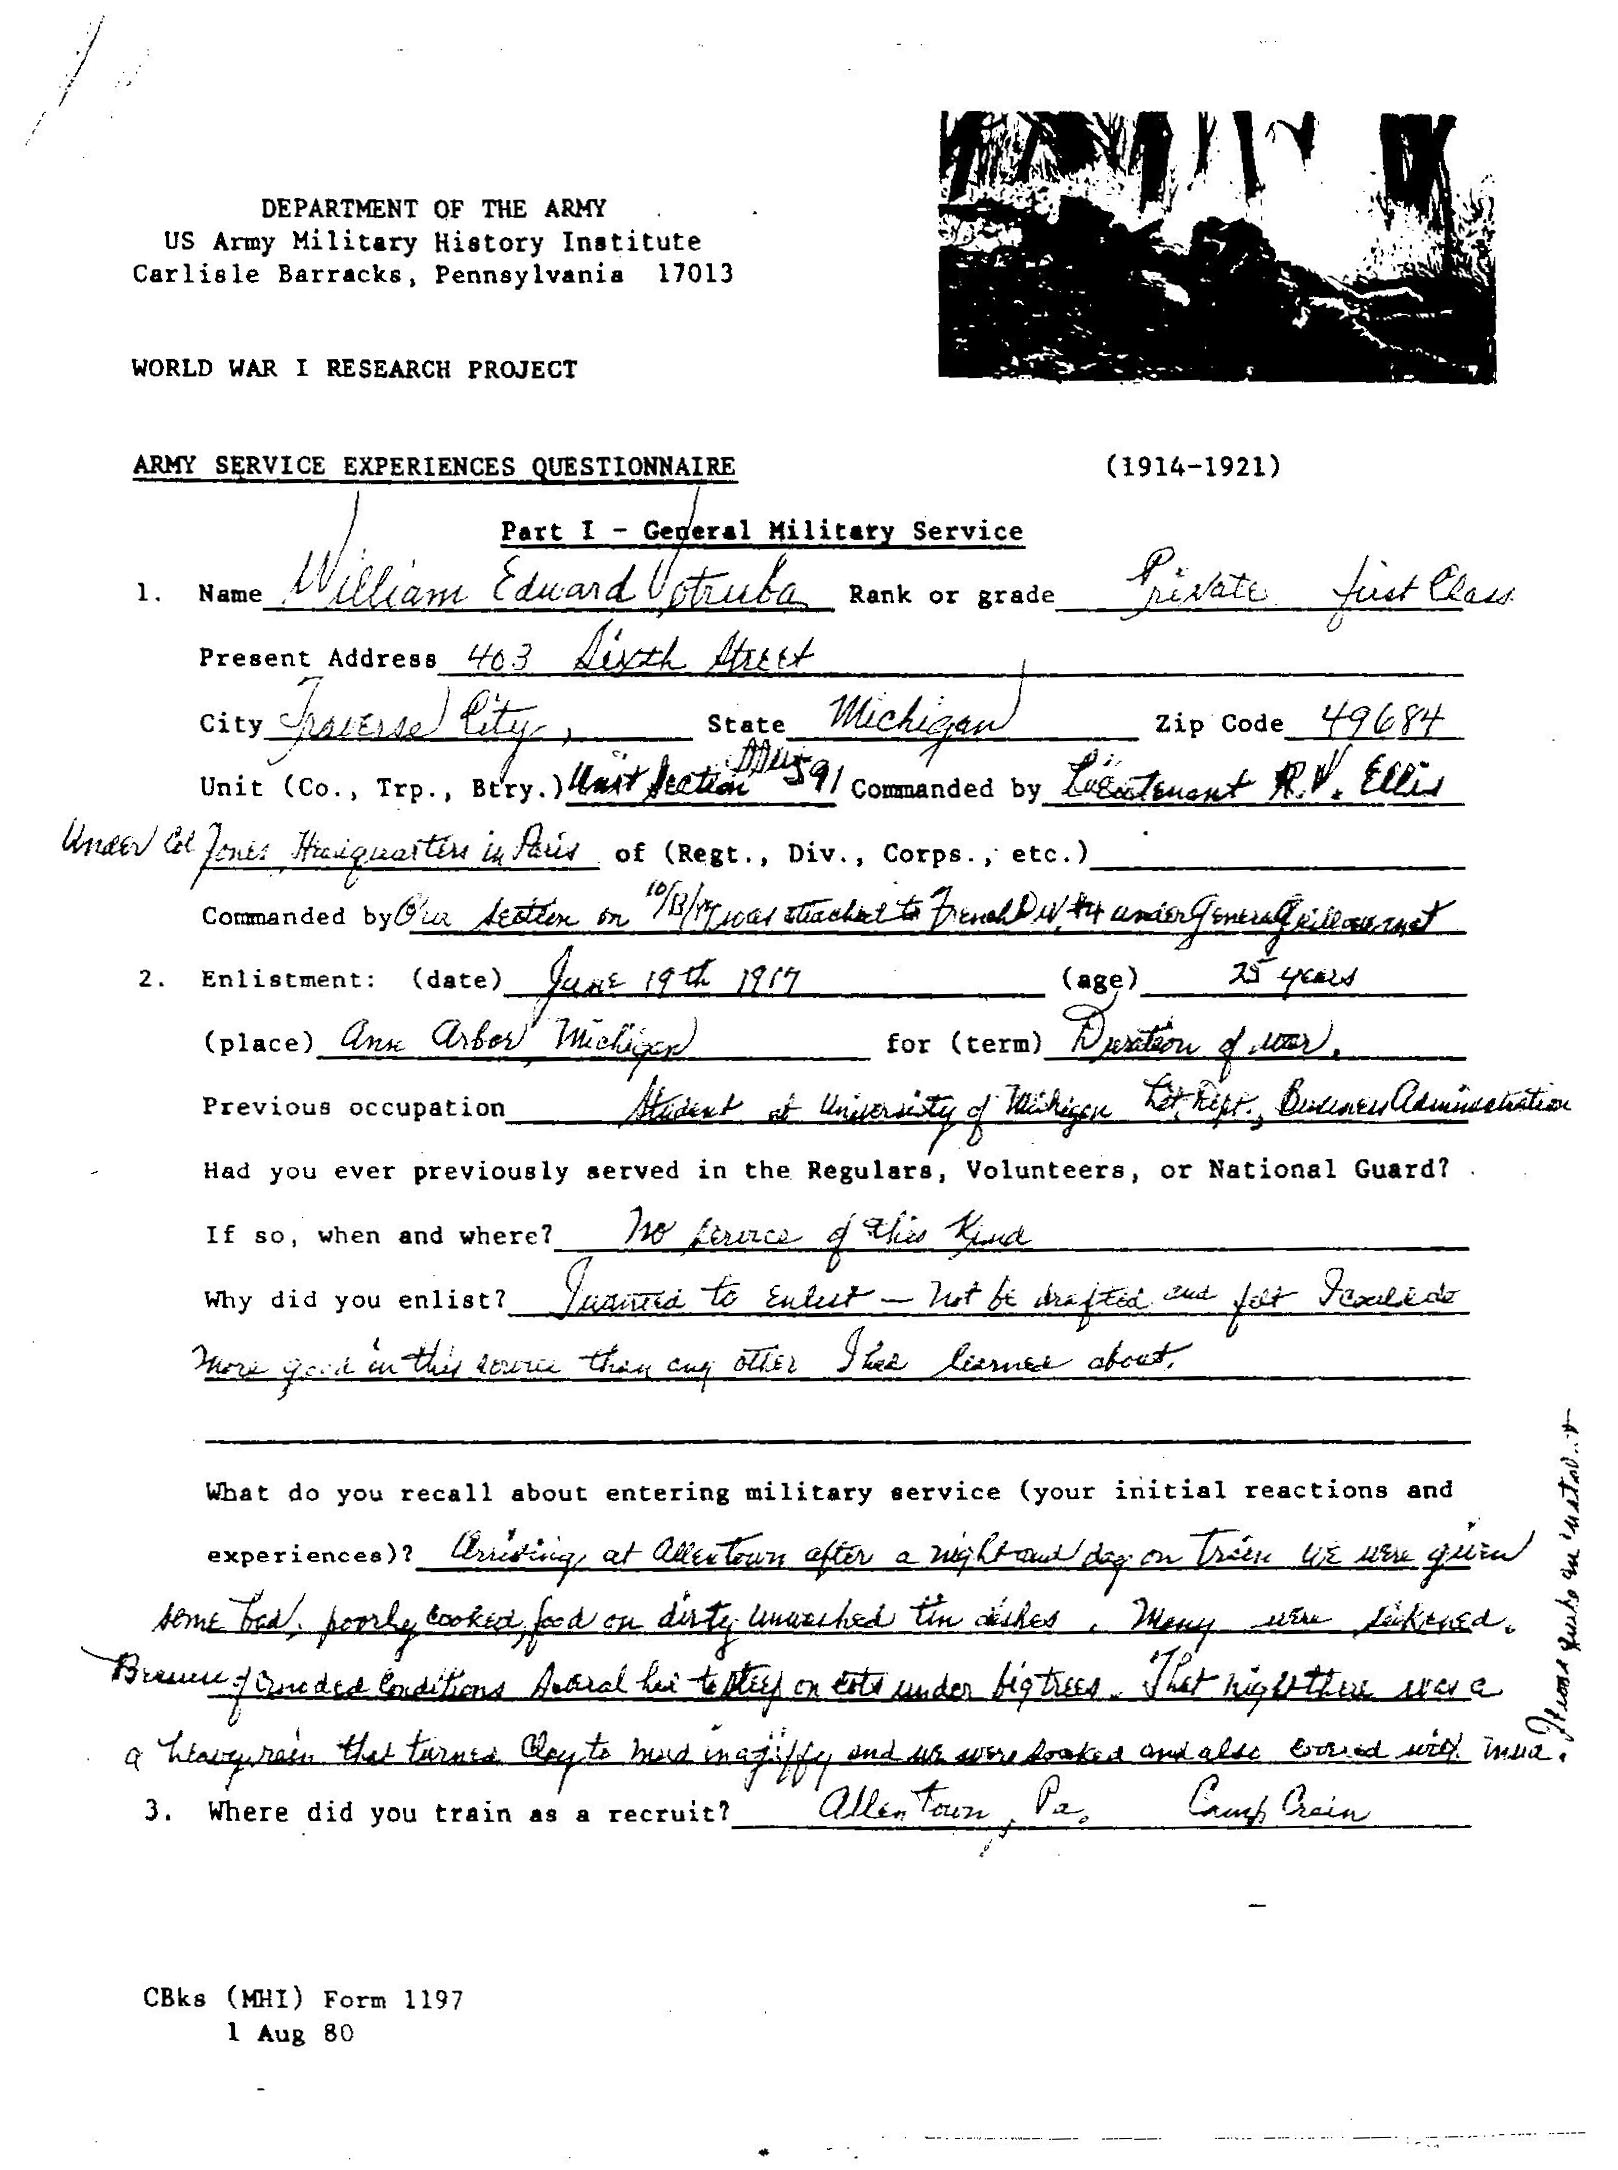 DEPARTMENT OF THE ARMY
US Army Military History Institute
Carlisle Barracks, Pennsylvania 17013
WORLD WAR I RESEARCH PROJECT
ARMY SERVICE EXPERIENCES QUESTIONNAIRE (1914-1921)
Part I - General Military Service
1. Name William Edward Votruba Rank or grade Private first Class
Present Address 403 Sixth Street
City Traverse City, State Michigan Zip Code 49684
Unit (Co., Trp., Btry.) Unit Section 591 Commanded by Lieutenant R.V. Ellis
Under Col Jones Headquarters in Paris of (Regt., Div., Corps., etc.)
Commanded by Our Section on 10/13/17 was attached to French Div. #4 under General
2. Enlistment: (date) June 19th 1917 (age) 25 years
(place) Ann Arbor Michigan for (term) Duration of war.
Previous occupation Student at University of Michigan Lit. Dept., Business Administration
Had you ever previously served in the Regulars, Volunteers, or National Guard?
If so, when and where? No service of this Kind
Why did you enlist? I wanted to enlist — not be drafted and felt I could do
more good in this service than any other I had learned about.
What do you recall about entering military service (your initial reactions and
experiences)? Arriving at Allentown after a night and day on train we were given
some bad, poorly cooked, food on dirty unwashed tin dishes. Many were sickened.
Because of crowded conditions several had to sleep on cots under big trees. That night there was a
a heavy rain that turned clay to mud in a jiffy and we were soaked and also covered with mud.
It was quite an
3. Where did you train as a recruit? Allentown, Pa. Camp Crain
CBks (MHI) Form 1197
1 Aug 80